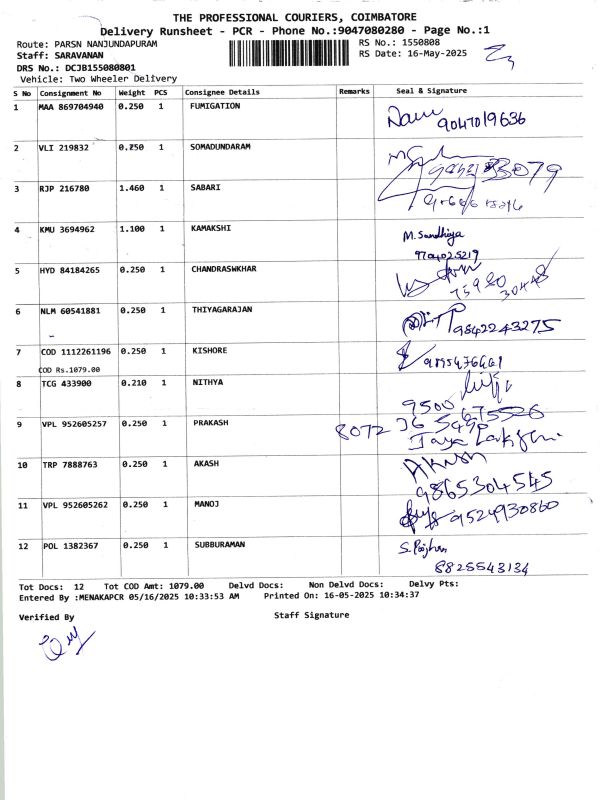 THE PROFESSIONAL COURIERS, COIMBATORE
Delivery Runsheet - PCR - Phone No.:9047080280 - Page No.:1
Route: PARSN NANJUNDAPURAM RS No.: 1550808
Staff: SARAVANAN RS Date: 16-May-2025
DRS No.: DCJB155080801
Vehicle: Two Wheeler Delivery
S No Consignment No Weight PCS Consignee Details Remarks Seal & Signature
1 MAA 869704940 0.250 1 FUMIGATION
9047019636
2 VLI 219832 0.250 1 SOMADUNDARAM
3 RJP 216780 1.460 1 SABARI
4 KMU 3694962 1.100 1 KAMAKSHI M. Sandhiya
9704025219
5 HYD 84184265 0.250 1 CHANDRASWKHAR
75980 30448
6 NLM 60541881 0.250 1 THIYAGARAJAN
9842243275
7 COD 1112261196 0.250 1 KISHORE
COD Rs.1079.00
8 TCG 433900 0.210 1 NITHYA
9500
9 VPL 952605257 0.250 1 PRAKASH 8072
10 TRP 7888763 0.250 1 AKASH Akash
9865304545
11 VPL 952605262 0.250 1 MANOJ 9524930860
12 POL 1382367 0.250 1 SUBBURAMAN
8825543134
Tot Docs: 12 Tot COD Amt: 1079.00 Delvd Docs: Non Delvd Docs: Delvy Pts:
Entered By :MENAKAPCR 05/16/2025 10:33:53 AM Printed On: 16-05-2025 10:34:37
Verified By Staff Signature